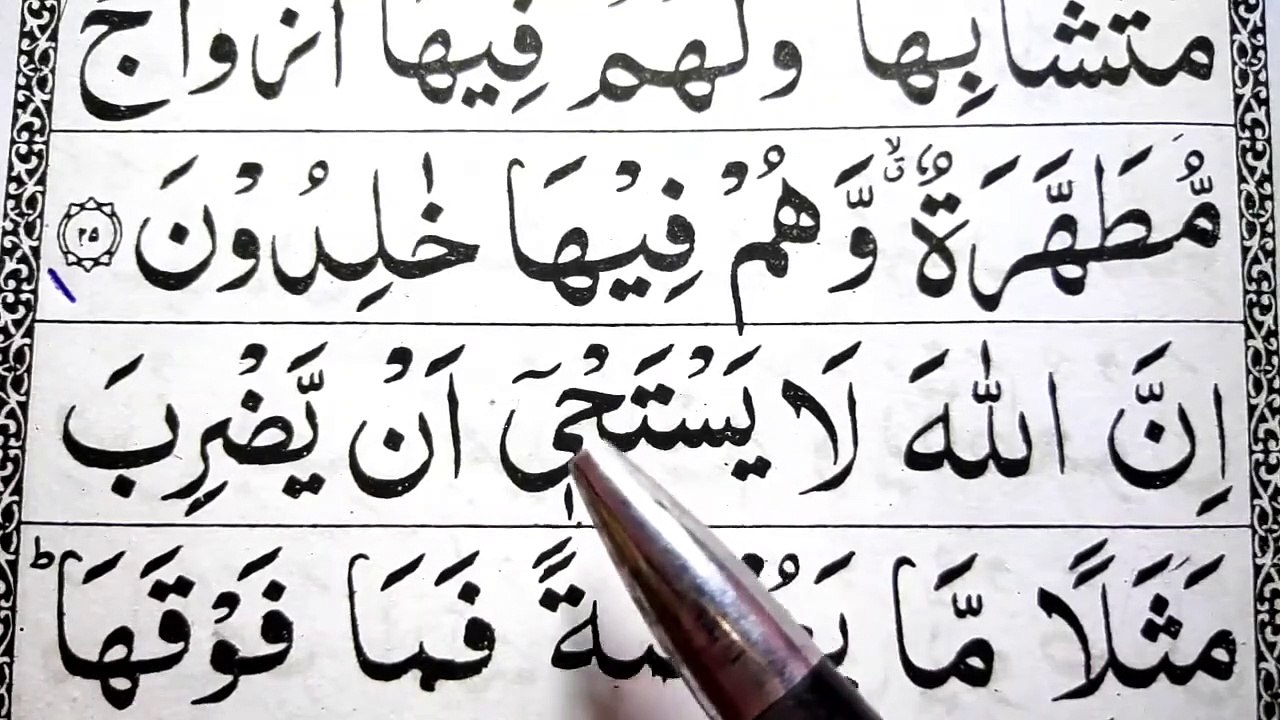 متشابها ولهم فيها ازواج
مُّطَهَّرَةٌ ۙ وَّهُمْ فِيْهَا خٰلِدُوْنَ ۲۵
اِنَّ اللّٰهَ لَا يَسْتَحْيٖۤ اَنْ يَّضْرِبَ
مَثَلًا مَّا فَمَا فَوْقَهَا ؕ